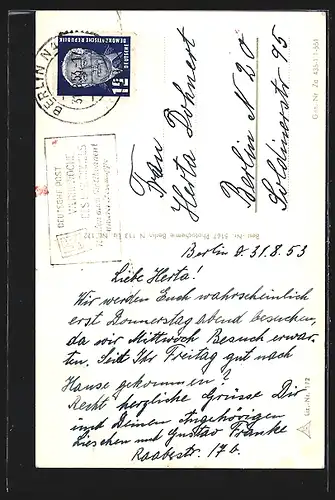 BERLIN N4
DEUTSCHE
DEMOKRATISCHE REPUBLIK
12
DEUTSCHE POST
Frau
Herta Dohnert
Berlin N 20
Soldinerstr 95
Berlin d. 31.8.53
Liebe Herta!
Wir werden Euch wahrscheinlich
erst Donnerstag abend besuchen,
da wir Mittwoch Besuch erwar-
ten. Seid Ihr Freitag gut nach
Hause gekommen?
Recht herzliche Grüsse Dir
und Deinen Angehörigen
Lieschen und Gustav Franke
Raabestr. 17b.